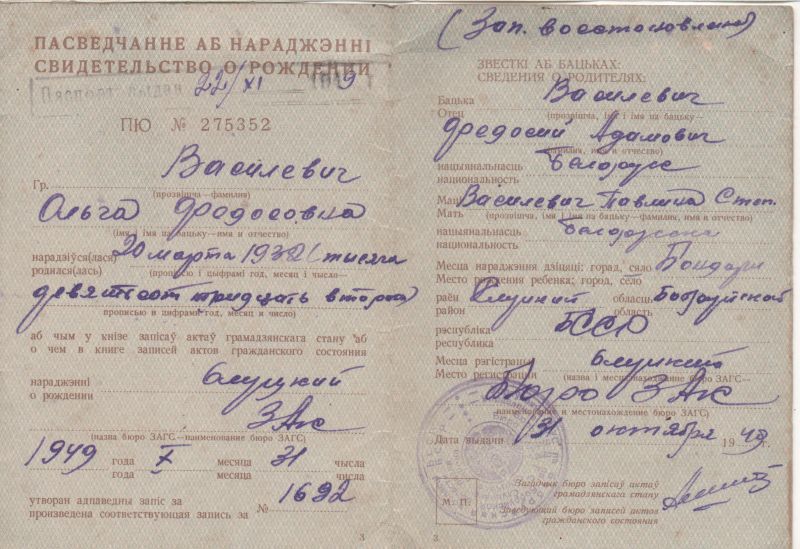 ПАСВЕДЧАННЕ АБ НАРАДЖЭННІ
СВИДЕТЕЛЬСТВО О РОЖДЕНИИ
Паспорт выдан 22/XI
ПЮ № 275352
Василевич
Гр.
(прозвішча—фамилия)
Ольга Федосовна
(імя і імя на бацьку—имя и отчество)
нарадзіўся(лася) 20 марта 1932 (тысяча
родился(лась) (прописью і цыфрамі год, месяц і число—
девятьсот тридцать второго)
прописью и цифрами год, месяц и число)
аб чым у кнізе запісей актаў грамадзянскага стану аб
о чем в книге записей актов гражданского состояния
нараджэнні Слуцкий
о рождении
ЗАГС
(назва бюро ЗАГС—наименование бюро ЗАГС)
1949 года X месяца 31 чысла
года месяца числа
утворан адпаведны запіс за № 1692
произведена соответствующая запись за
3
(Зап. восстановлена)
ЗВЕСТКІ АБ БАЦЬКАХ:
СВЕДЕНИЯ О РОДИТЕЛЯХ:
Бацька Василевич
Отец (прозвішча, імя і імя на бацьку—
Федосий Адамович
фамилия, имя и отчество)
нацыянальнасць Белорус
национальность
Маці Василевич Павлина Степ.
Мать (прозвішча, імя і імя на бацьку—фамилия, имя и отчество)
нацыянальнасць Белоруска
национальность
Месца нараджэння дзіцяці: горад, сяло Бондари
Место рождения ребенка: город, село
раён Слуцкий область Бобруйской
район область
рэспубліка БССР
республика
Месца рэгістрацыі Слуцкий
Место регистрации (назва і месцазнаходжанне бюро ЗАГС—
Бюро ЗАГС
наименование и местонахождение бюро ЗАГС)
Дата выдачи 31 октября 1949 г.
Загадчык бюро запісаў актаў
грамадзянскага стану
М. П.
Заведующий бюро записей актов
гражданского состояния
3